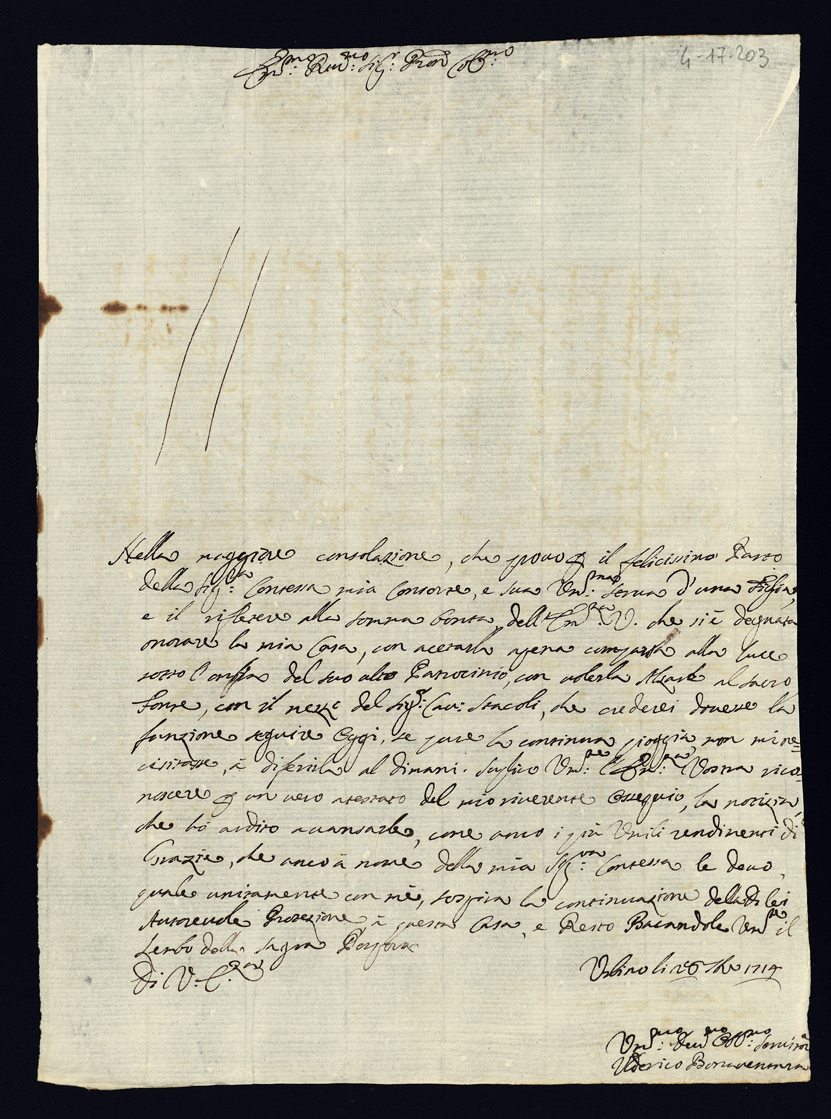 4-17-203
Em.mo Rev.mo Sig.r Pron Col.mo
Nella maggiore consolazione, che provo p il felicissimo Parto
della Sig.ra Contessa mia Consorte, e sua Um.ma serva d'una Figlia,
e il riflettere alla somma bontà dell'Em.za V. che si è degnata
onorare la mia Casa, con accettarla apena comparsa alla luce
sotto l'ombra del suo alto Patrocinio, con volerla alzare al sacro
Fonte, con il mezzo del Sig.r Cav. Staccoli, che crederei dovere la
funzione seguire Oggi, se pure la continua pioggia non mi ne=
cesitasse, à diferirla al dimani. Suplico Um.te l'Em.za Vostra rico=
noscere p un vero attestato del mio riverente ossequio, la notizia,
che hò ardito avansarle, come anco i più Umili rendimenti di
Grazie, che anco à nome della mia Sig.ra Contessa le devo,
quale unitamente con mè, sospira la continuazione della di lei
Autorevole Protezione à questa Casa, e Resto Baciandole Um.te il
Lembo della Sagra Porpora
Di V. E.za
Urbino li 26 1714
Um.mo Dev.mo Obb.mo Servitor
Uderico Bonaventura